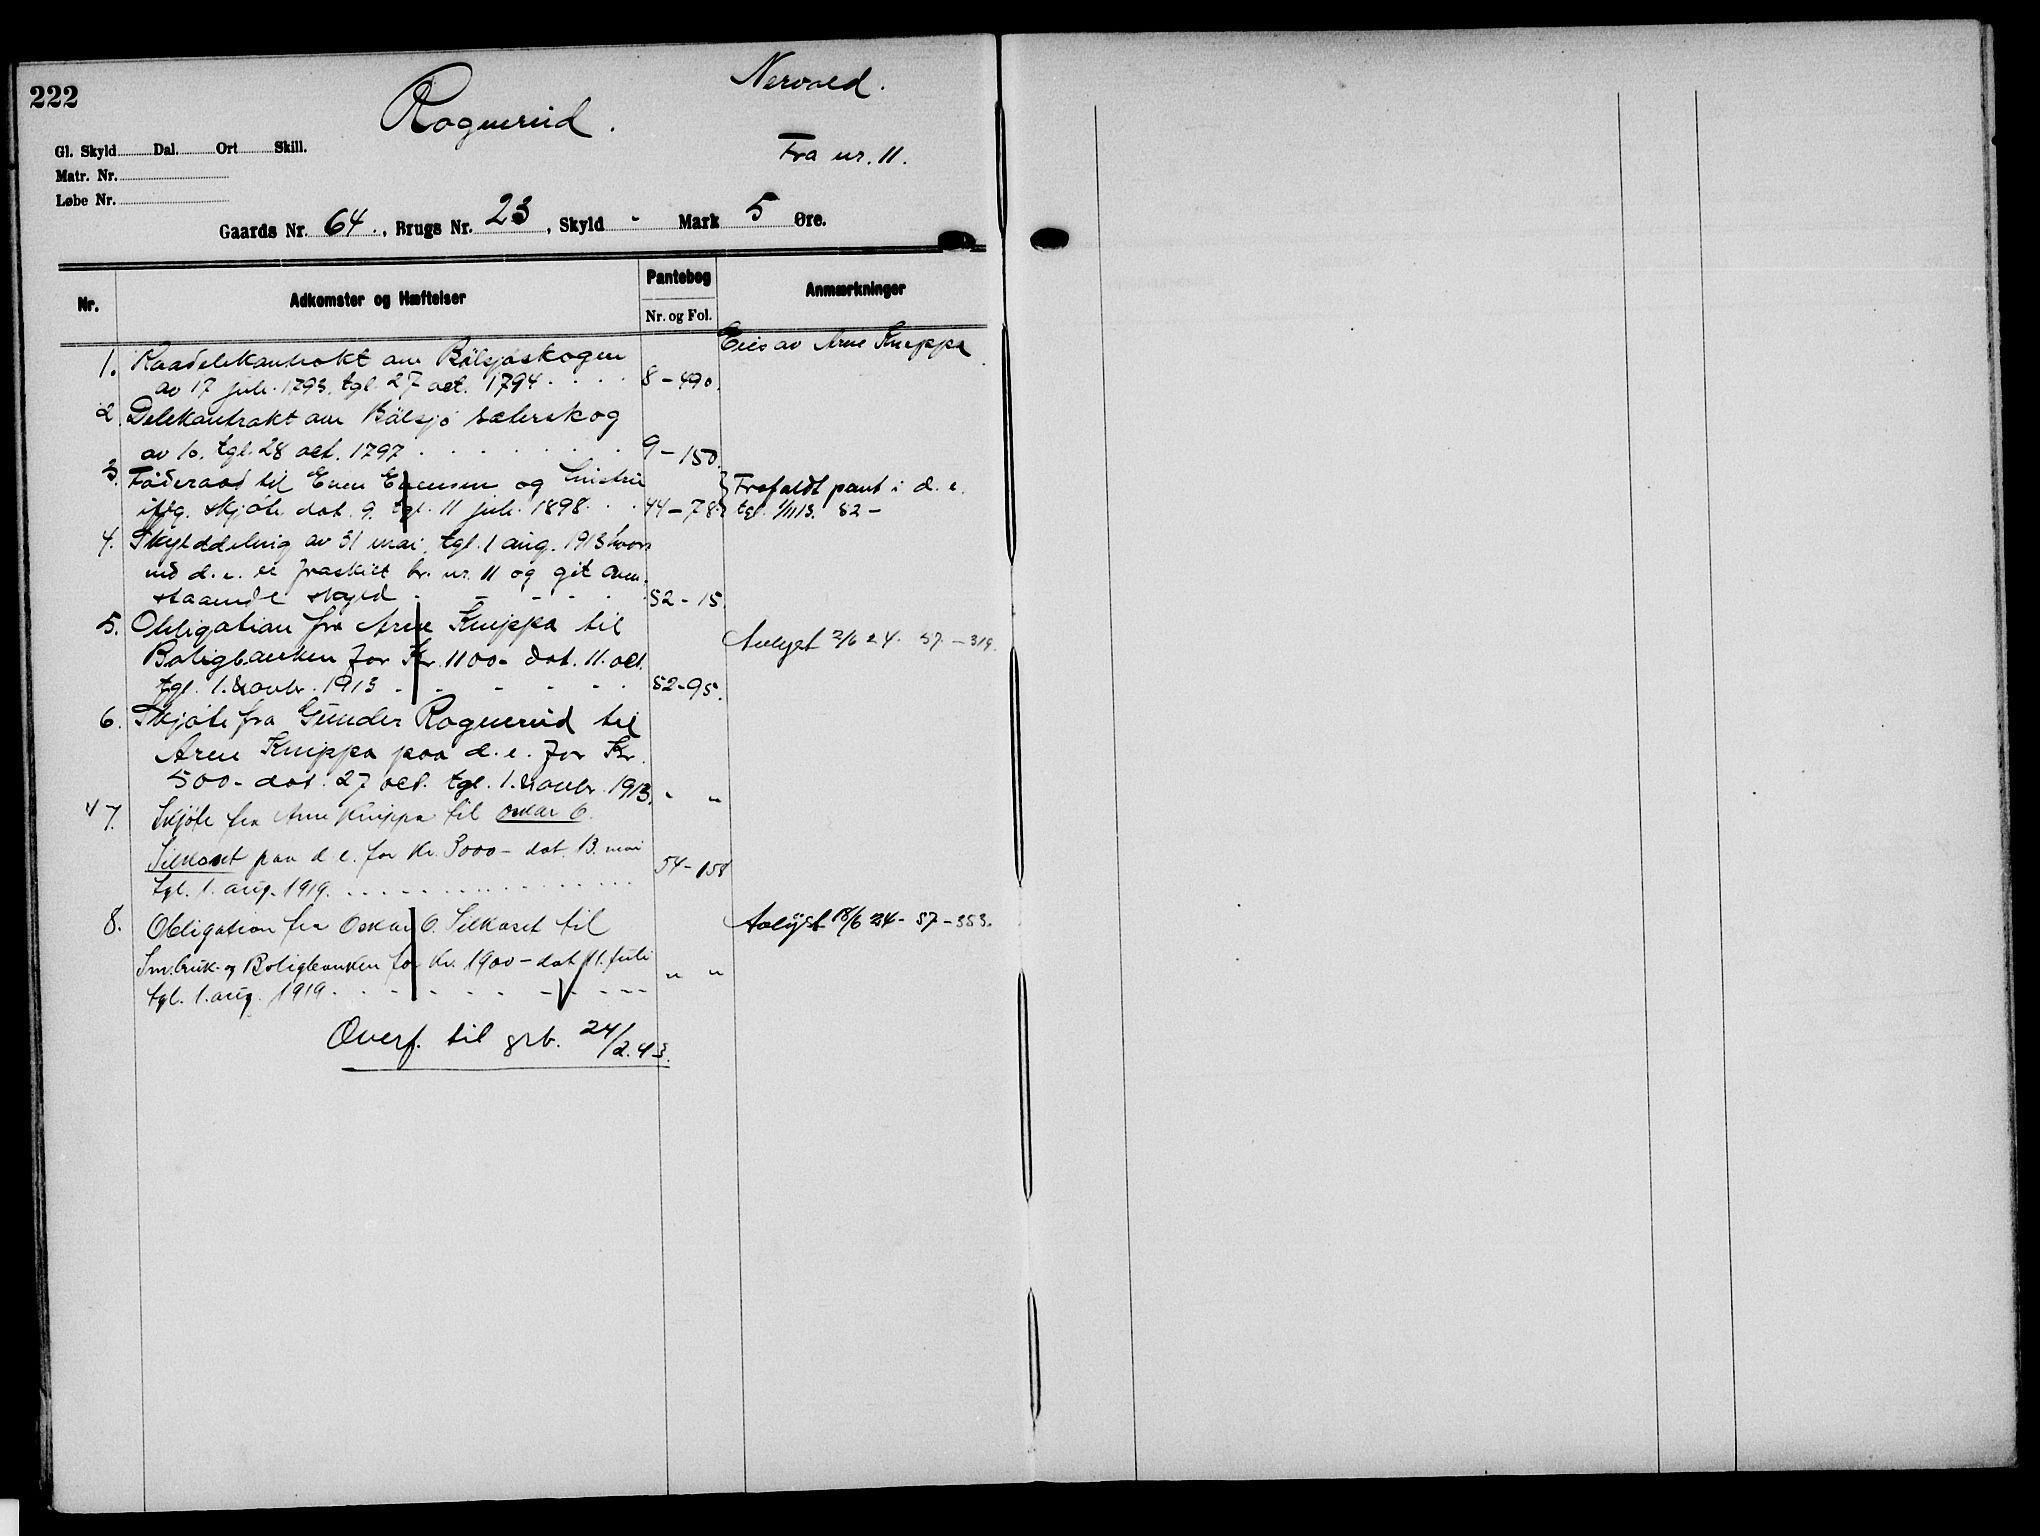 222
Nervold.
Rognerud.
Gl. Skyld Dal. Ort Skill.
Fra nr. 11.
Matr. Nr.
Løbe Nr.
Gaards Nr. 64., Brugs Nr. 23, Skyld - Mark 5 Øre.
Nr. Adkomster og Hæftelser Pantebog Nr. og Fol. Anmærkninger
Eies av Arne Knippa
1. om Bølsjøskogen
av 17 juli 1793. tgl. 27 oct. 1794 . . . . 8-490.
2. Delekontrakt om Bølsjø sæterskog
av 10. tgl. 28 oct. 1797 . . . . . . . 9-150.
3. Føderaad til Even Evensen og hustru } Frafaldt pant i d. e.
iflg. skjøte dat. 9. tgl. 11 juli 1898. . . 44-78. tgl. 1/11 13. 52-
4. Skylddeling av 31 mai, tgl. 1 aug. 1913 hvor
ved d. e. er fraskilt br. nr. 11 og git oven-
staaende skyld - - - - - 52-15.
5. Obligation fra Arne Knippa til Avlyst 2/6 24. 57-319.
Boligbanken for Kr. 1100- dat. 11. oct.
tgl. 1. novbr. 1913 - - - - - 52-95.
6. Skjøte fra Gunder Rognerud til
Arne Knippa paa d. e. for Kr.
500- dat. 27 oct. tgl. 1. novbr. 1913. " "
7. Skjøte fra Arne Knippa til Oskar O.
Silkoset paa d e. for Kr. 3000- dat. 13. mai
tgl. 1. aug. 1919. . . . . . . . . . 54-158
8. Obligation fra Oskar O. Silkoset til Avlyst 18/6 24- 57-353.
Sm.bruk- og Boligbanken for Kr. 1900- dat 11. juli
tgl. 1. aug. 1919. . . - - - - - - " "
Overf. til grb. 24/2.43.